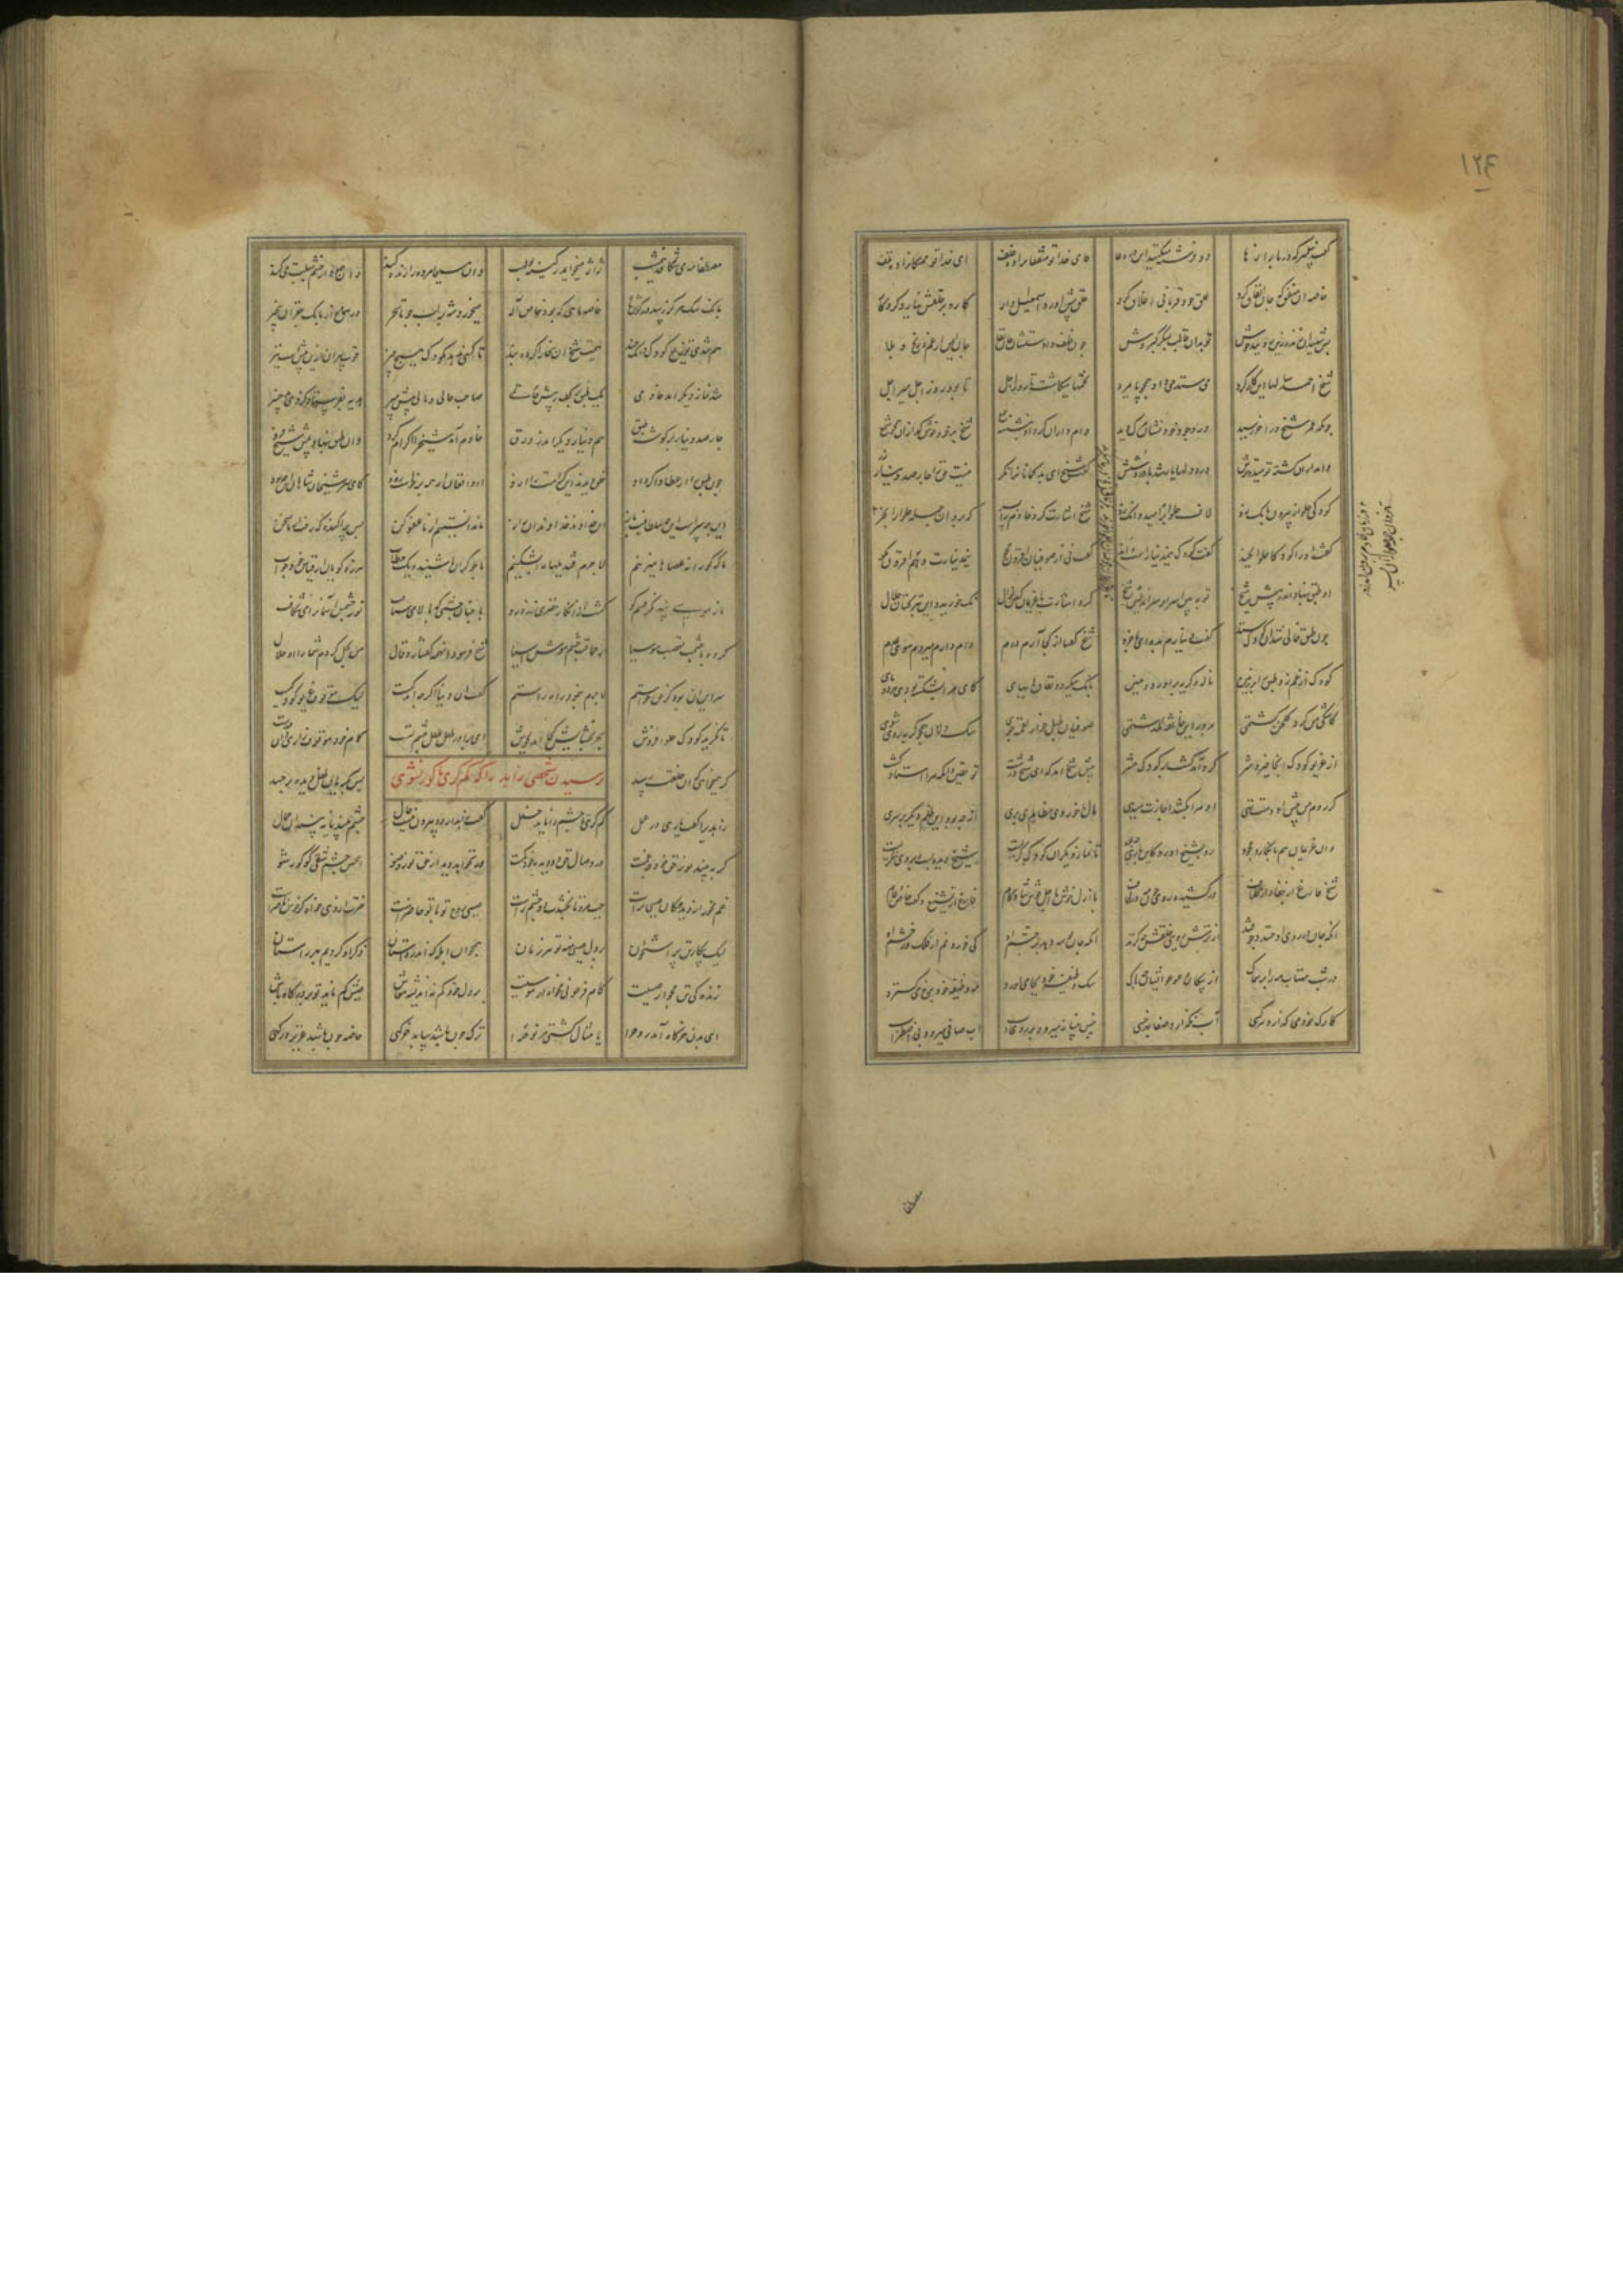 ۱۲۴
گفت پیغمبر که در بازارها دو فرشته میکنند ایدر دعا کای خدا تو منفقان را ده خلف ای خدا تو ممسکان را ده تلف
خاصه آن منفق که جان انفاق کرد حلق خود قربانی خلاق کرد حلق پیش آورد اسمعیل وار کارد بر حلقش نیارد کرد کار
پس شهیدان زنده زین رویند خوش تو بدان قالب بمنگر گبروش چون خلف دادستشان جان بقا جان ایمن از غم و رنج و بلا
شیخ احمد سالها این کار کرد می ستد می داد همچو پایمرد تخمها میکاشت تا روز اجل تا بود روز اجل میر اجل
چونکه عمر شیخ در آخر رسید در وجود خود نشان مرگ دید وام داران گرد او بنشسته جمع شیخ بر خود خوش گدازان همچو شمع
وام داران گشته نومید و ترش درد دلها یار شد با درد شش گفت شیخ ای بدگمانان را نگر نیست حق را چار صد دینار زر
کودکی حلوا ز بیرون بانگ زد لاف حلوا بر امید دانگ زد شیخ اشارت کرد خادم را بسر که برو آن جمله حلوا را بخر
گفت او را کودکا حلوا بچند گفت کودک نیم دینارست و اند گفت نی از صوفیان افزون مجو نیم دینارت دهم افزون مگو
او طبق بنهاد اندر پیش شیخ تو ببین اسرار سراندیش شیخ کرد اشارت با غریمان کین نوال نک خورید این تبرک حلال
چون طبق خالی شد آن کودک ستد گفت دینارم بده ای با خرد شیخ گفتا از کجا آرم درم وام دارم میروم سوی عدم
کودک از غم زد طبق را بر زمین ناله و گریه برآورد و حنین بانگ میکرد و فغان و های های کای مرا بشکسته بودی هر دو پای
کاشکی من گرد گلخن گشتمی بر در این خانقه نگذشتمی صوفیان طبل خوار لقمه جوی سگ دلان همچو گربه روی شوی
از غریو کودک آنجا خیر و شر گرد آمد گشت بر کودک حشر پیش شیخ آمد که ای شیخ درشت تو یقین دان که مرا استاد کشت
گر روم من پیش او دست تهی او مرا بکشد اجازت میدهی مال ما خوردی مظالم می بری از چه بود این ظلم دیگر بر سری
وان غریمان هم بانکار و جحود رو بشیخ آورده کاین باری چه بود تا نماز دیگر آن کودک گریست شیخ دیده بست و بر وی ننگریست
شیخ فارغ از جفا و از خلاف درکشیده روی چون مه در لحاف با ازل خوش با اجل خوش شاد کام فارغ از تشنیع و گفت خاص و عام
آنکه جان در روی او خندد چو قند از ترش رویی خلقش چه گزند آنکه جان بوسه دهد بر چشم او کی خورد غم از فلک وز خشم او
در شب مهتاب مه را بر سماک از سگان و عوعو ایشان چه باک سگ وظیفه خود بجای آورد مه وظیفه خود برخ می گسترد
کارک خود می گذارد هر کسی آب نگذارد صفا بهر خسی خس خسانه میرود بر روی آب آب صافی میرود بی اضطراب
مصطفی مه می شکافد نیم شب ژاژ میخاید ز کینه بولهب وان مسیحا مرده را زنده کند وان جهود از خشم سبلت می کند
بانگ سگ هرگز رسد در گوش ماه خاصه ماهی که بود خاص اله میخورد شه بر لب جو تا سحر در سماع از بانگ چغزان بیخبر
هم شدی توزیع کودک دانگ چند همت شیخ آن سخا را کرد بند تا کسی ندهد بکودک هیچ چیز قوت پیران ازین بیش است نیز
شد نماز دیگر آمد خادمی یک طبق بر کف ز پیش حاتمی صاحب حالی و مالی پیش پیر هدیه بفرستاد کز وی بد خبیر
چار صد دینار بر گوشه طبق نیم دینار دیگر اندر ورق خادم آمد شیخ را اکرام کرد وان طبق بنهاد پیش شیخ فرد
چون طبق را از غطا وا کرد رو خلق دیدند آن کرامت را ازو آه و افغان از همه برخاست زود کای سر شیخان و شاهان این چه بود
این چه سرست این چه سلطانیست باز ای خداوند خداوندان راز ما ندانستیم ما را عفو کن بس پراکنده که رفت از ما سخن
ما که کورانه عصاها میزنیم لاجرم قندیلها را بشکنیم ما چو کران ناشنیده یک خطاب هرزه گویان از قیاس خود جواب
ما ز موسی پند نگرفتیم کو گشت از انکار خضری زرد رو با چنان چشمی که بالا می شتافت نور چشمش آسمان را می شکافت
کرده با چشمت تعصب موسیا از حماقت چشم موش آسیا شیخ فرمود آن همه گفتار و قال من بحل کردم شما را آن حلال
سر این آن بود کز حق خواستم لاجرم بنمود راه راستم گفت آن دینار اگرچه اندکست لیک موقوف غریو کودکست
تا نگرید کودک حلوا فروش بحر بخشایش نمی آید بجوش ای برادر طفل طفل چشم تست کام خود موقوف زاری دان درست
گر همیخواهی که آن خلعت رسد پس بگریان طفل دیده بر جسد
ترسیدن شخصی زاهد را که کم گری تا کور نشوی
زاهدی را گفت یاری در عمل کم گری تا چشم را ناید خلل گفت زاهد از دو بیرون نیست حال چشم بیند یا نبیند آن جمال
گر ببیند نور حق خود چه غمست در وصال حق دو دیده چه کمست ور نخواهد دید از حق نور و ضو این چنین چشم شقی گو کور شو
غم مخور از دیده کان عیسی تراست چپ مرو تا بخشدت دو چشم راست عیسی روح تو با تو حاضرست نصرت از وی خواه کو خوش ناصرست
لیک بیگار تن پر استخوان بر دل عیسی منه تو هر زمان همچو آن ابله که اندر داستان ذکر او کردیم بهر راستان
زندگی تن مجو از عیسیت کام فرعونی مخواه از موسیت بر دل خود کم نه اندیشه معاش عیش کم ناید تو بر درگاه باش
این بدن خرگاه آمد روح را یا مثال کشتی مر نوح را ترک چون باشد بیابد خرگهی خاصه چون باشد عزیز درگهی